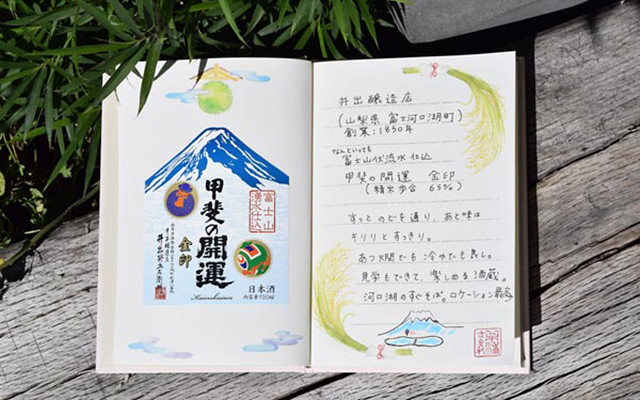 甲斐の開運
金印
富士山
湧水仕込
井出與五右衞門
日本酒
内容量720ml
Kainokaiun
井出醸造店
(山梨県 富士河口湖町)
創業:1850年
なんといっても
富士山伏流水仕込
甲斐の開運 金印
(精米歩合 65%)
すっとのどを通り、あと味は
キリリとすっきり。
あつ燗でも冷やでも良し。
見学もできて、楽しめる酒蔵。
河口湖のすぐそば。ロケーション最高